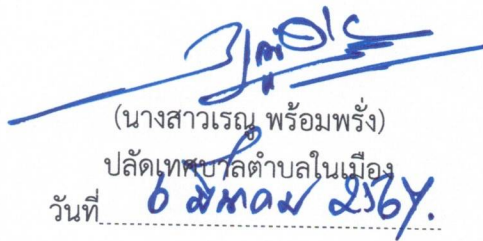 (นางสาวเรณู พร้อมพรั่ง)
ปลัดเทศบาลตำบลในเมือง
วันที่ 6 มีนาคม 256